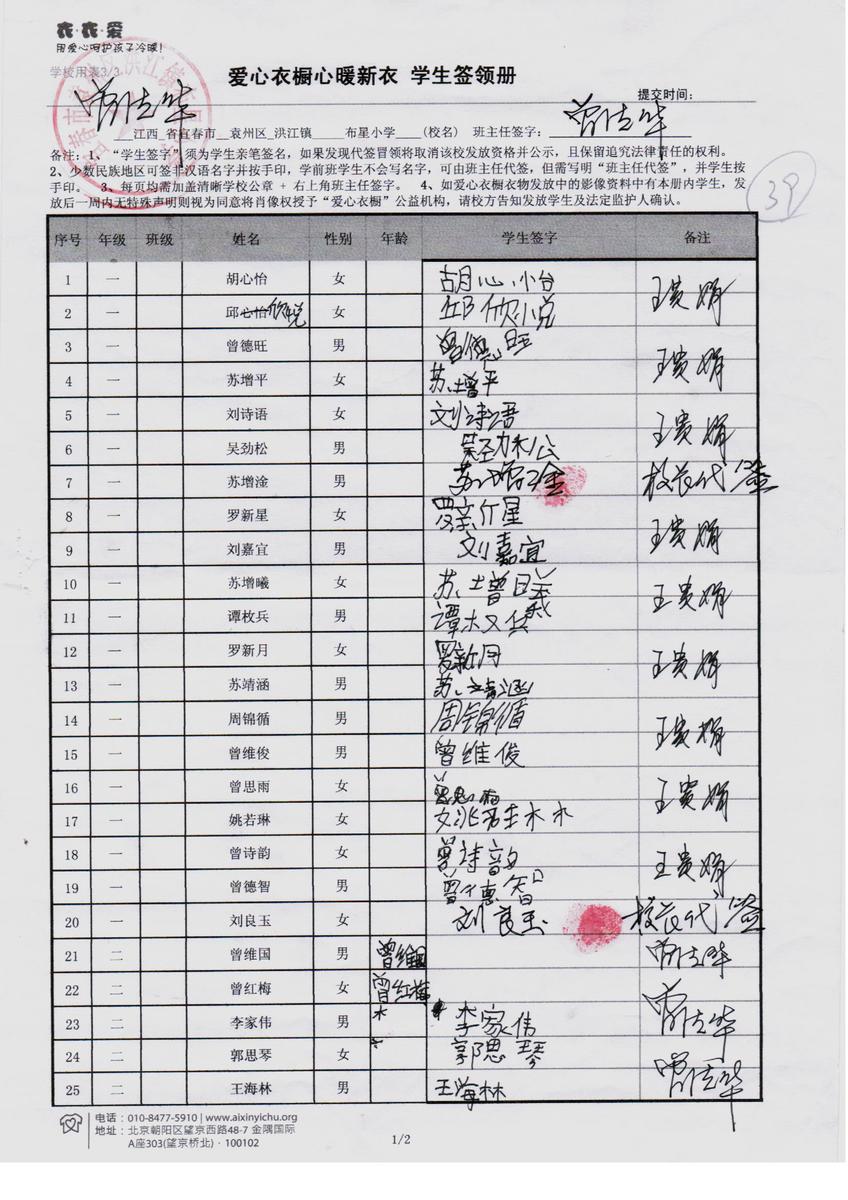 衣·衣·爱
用爱心呵护孩子冷暖!
学校用表3/3
爱心衣橱心暖新衣 学生签领册
提交时间:
江西_省宜春市__袁州区_洪江镇 布星小学____(校名) 班主任签字:
备注:1、“学生签字”须为学生亲笔签名,如果发现代签冒领将取消该校发放资格并公示,且保留追究法律责任的权利。
2、少数民族地区可签非汉语名字并按手印,学前班学生不会写名字,可由班主任代签,但需写明“班主任代签”,并学生按
手印。 3、每页均需加盖清晰学校公章 + 右上角班主任签字。 4、如爱心衣橱衣物发放中的影像资料中有本册内学生,发
放后一周内无特殊声明则视为同意将肖像权授予“爱心衣橱”公益机构,请校方告知发放学生及法定监护人确认。
39
序号 年级 班级 姓名 性别 年龄 学生签字 备注
1 一 胡心怡 女 胡心怡
2 一 邱心怡欣悦 女 邱欣悦 王贵娟
3 一 曾德旺 男 曾德旺
4 一 苏增平 女 苏增平 王贵娟
5 一 刘诗语 女 刘诗语
6 一 吴劲松 男 吴劲松 王贵娟
7 一 苏增淦 男 苏增淦 校长代签
8 一 罗新星 女 罗新星
9 一 刘嘉宜 男 刘嘉宜 王贵娟
10 一 苏增曦 女 苏增曦
11 一 谭枚兵 男 谭枚兵 王贵娟
12 一 罗新月 女 罗新月
13 一 苏靖涵 男 苏靖涵 王贵娟
14 一 周锦循 男 周锦循
15 一 曾维俊 男 曾维俊 王贵娟
16 一 曾思雨 女 曾思雨
17 一 姚若琳 女 姚若琳 王贵娟
18 一 曾诗韵 女 曾诗韵
19 一 曾德智 男 曾德智 王贵娟
20 一 刘良玉 女 刘良玉 校长代签
21 二 曾维国 男 曾维国
22 二 曾红梅 女 曾红梅
23 二 李家伟 男 李家伟
24 二 郭思琴 女 郭思琴
25 二 王海林 男 王海林
电话:010-8477-5910 | www.aixinyichu.org
地址:北京朝阳区望京西路48-7 金隅国际
A座303(望京桥北)·100102
1/2